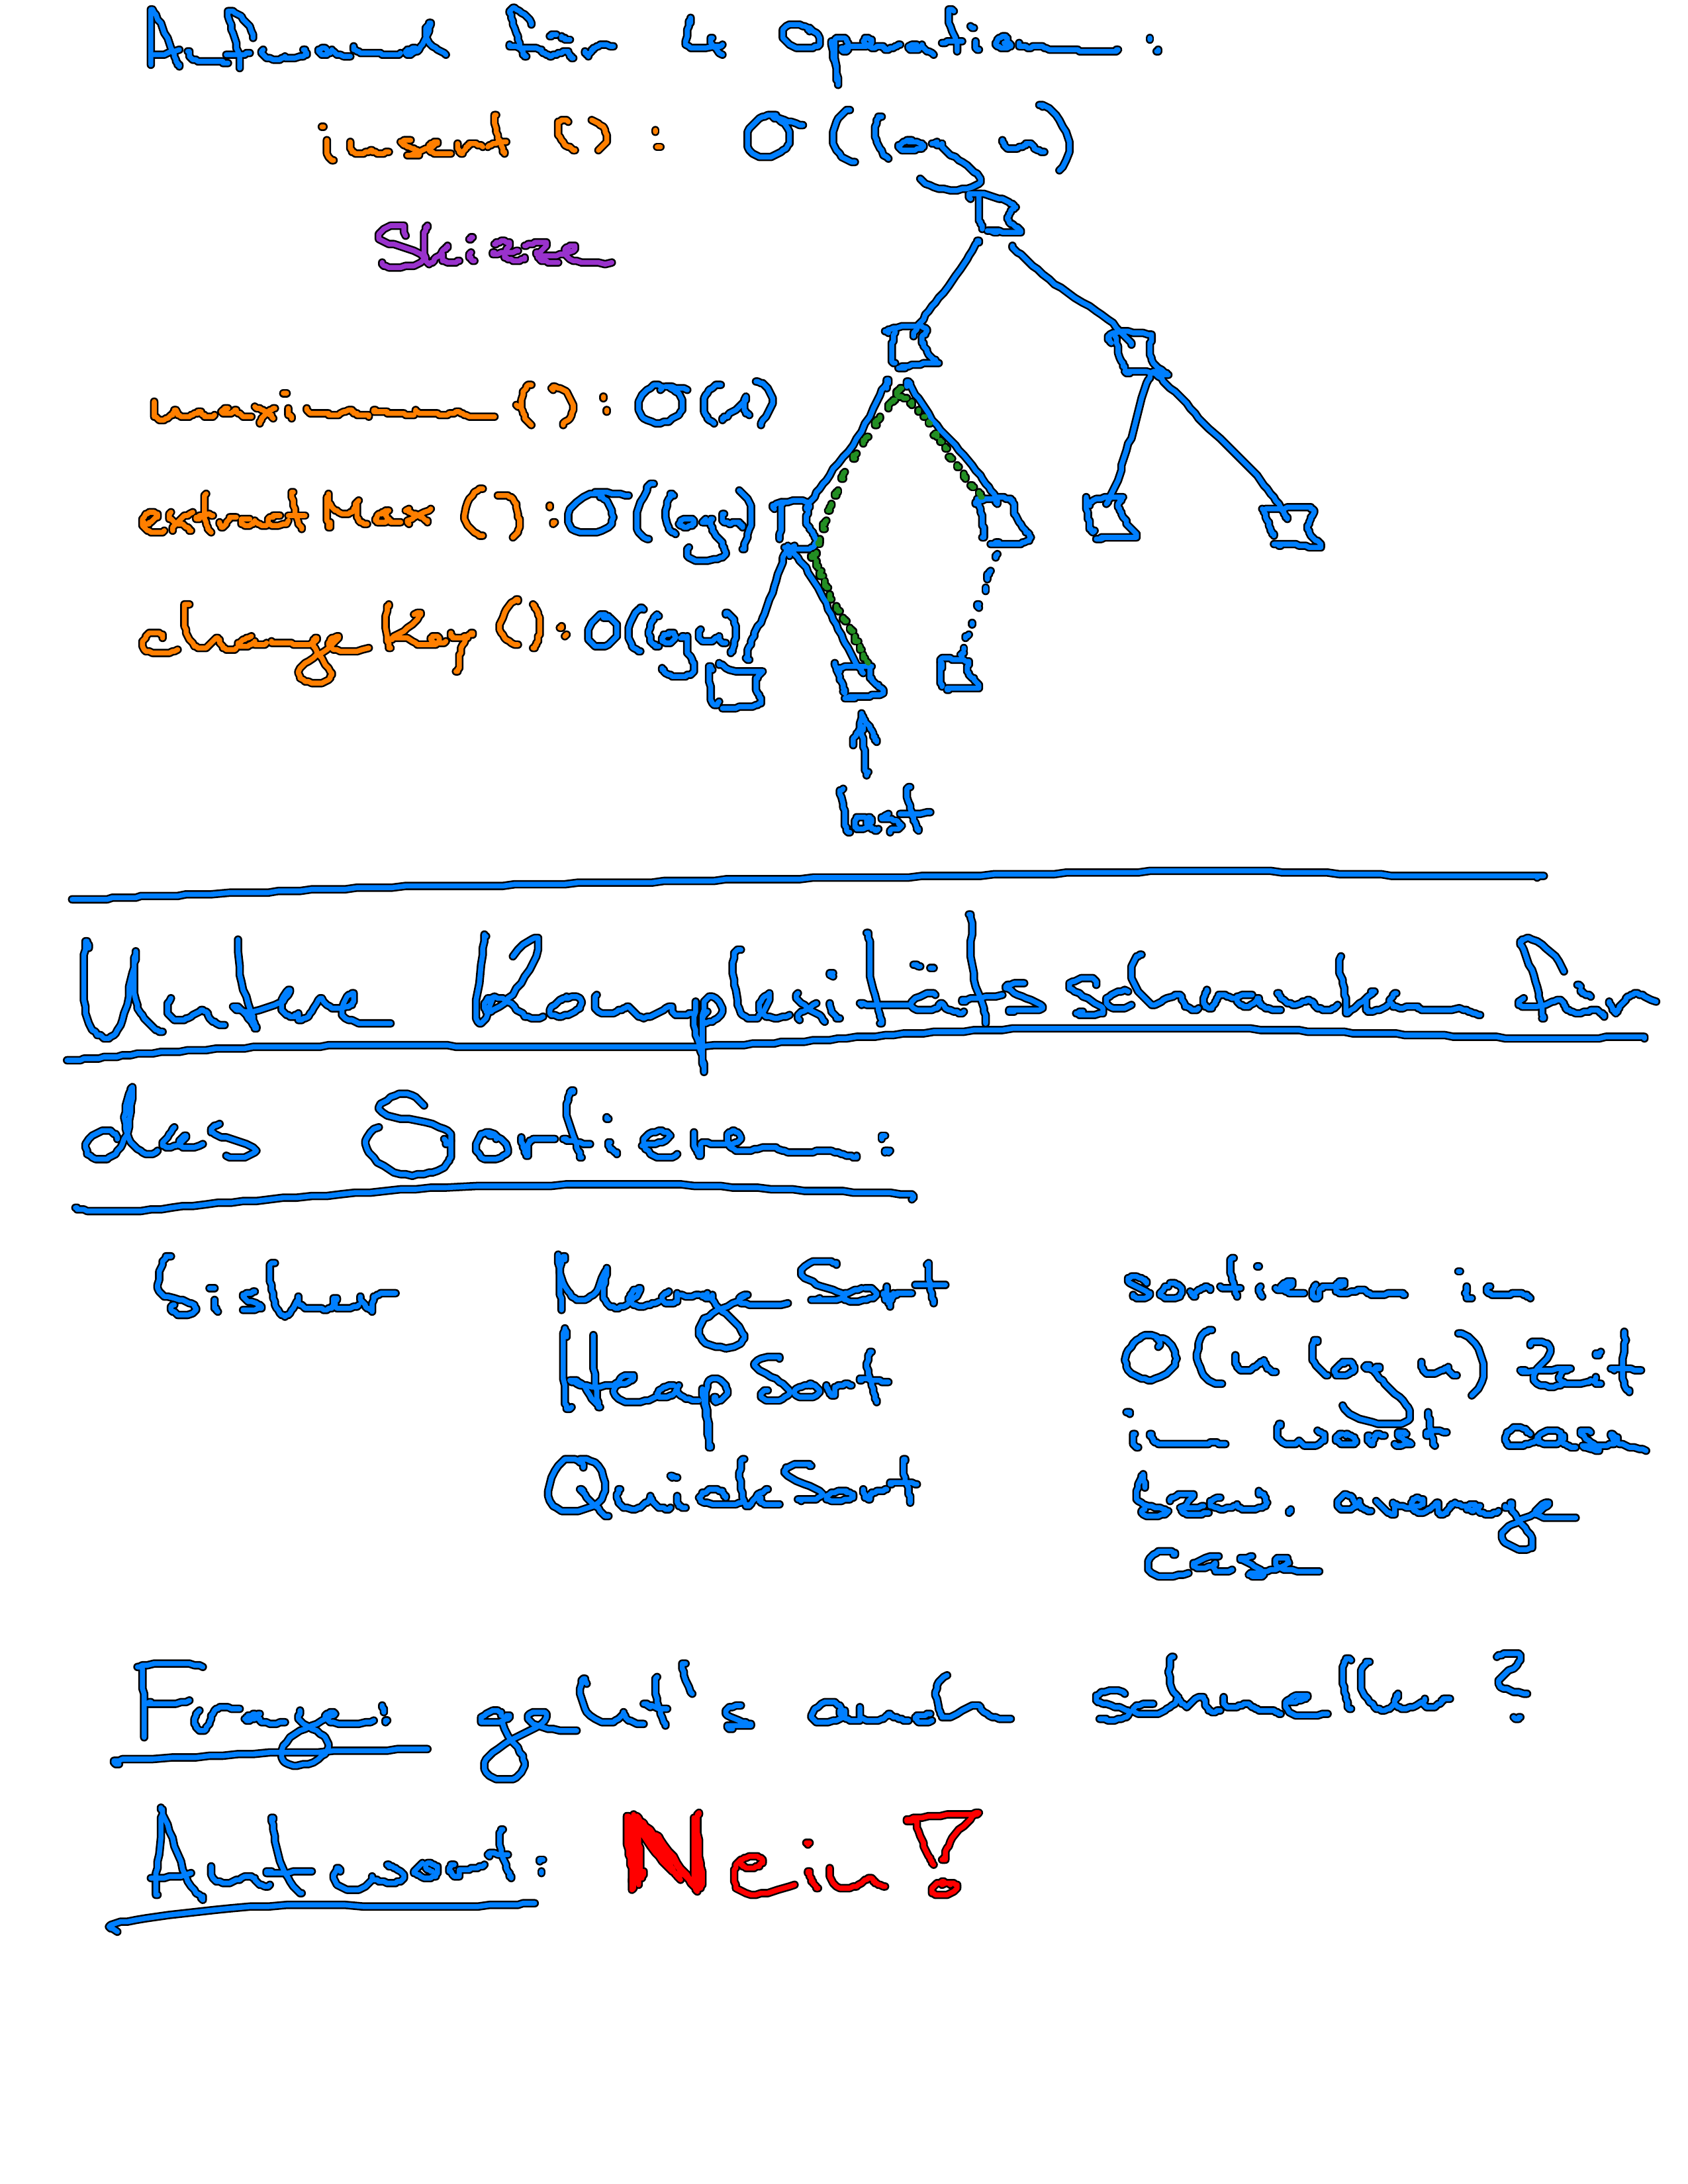 Aufwand für 4 Operationen:
insert (): O(log n)
Skizze
maximum (): O(1)
extractMax (): O(log n)
changeKey (): O(log n)
last
Untere Komplexitätsschranken für
das Sortieren:
bisher MergeSort sortieren in
HeapSort O(n log n) Zeit
im worst case
QuickSort bzw. average
case
Frage: geht's auch schneller?
Antwort: Nein!